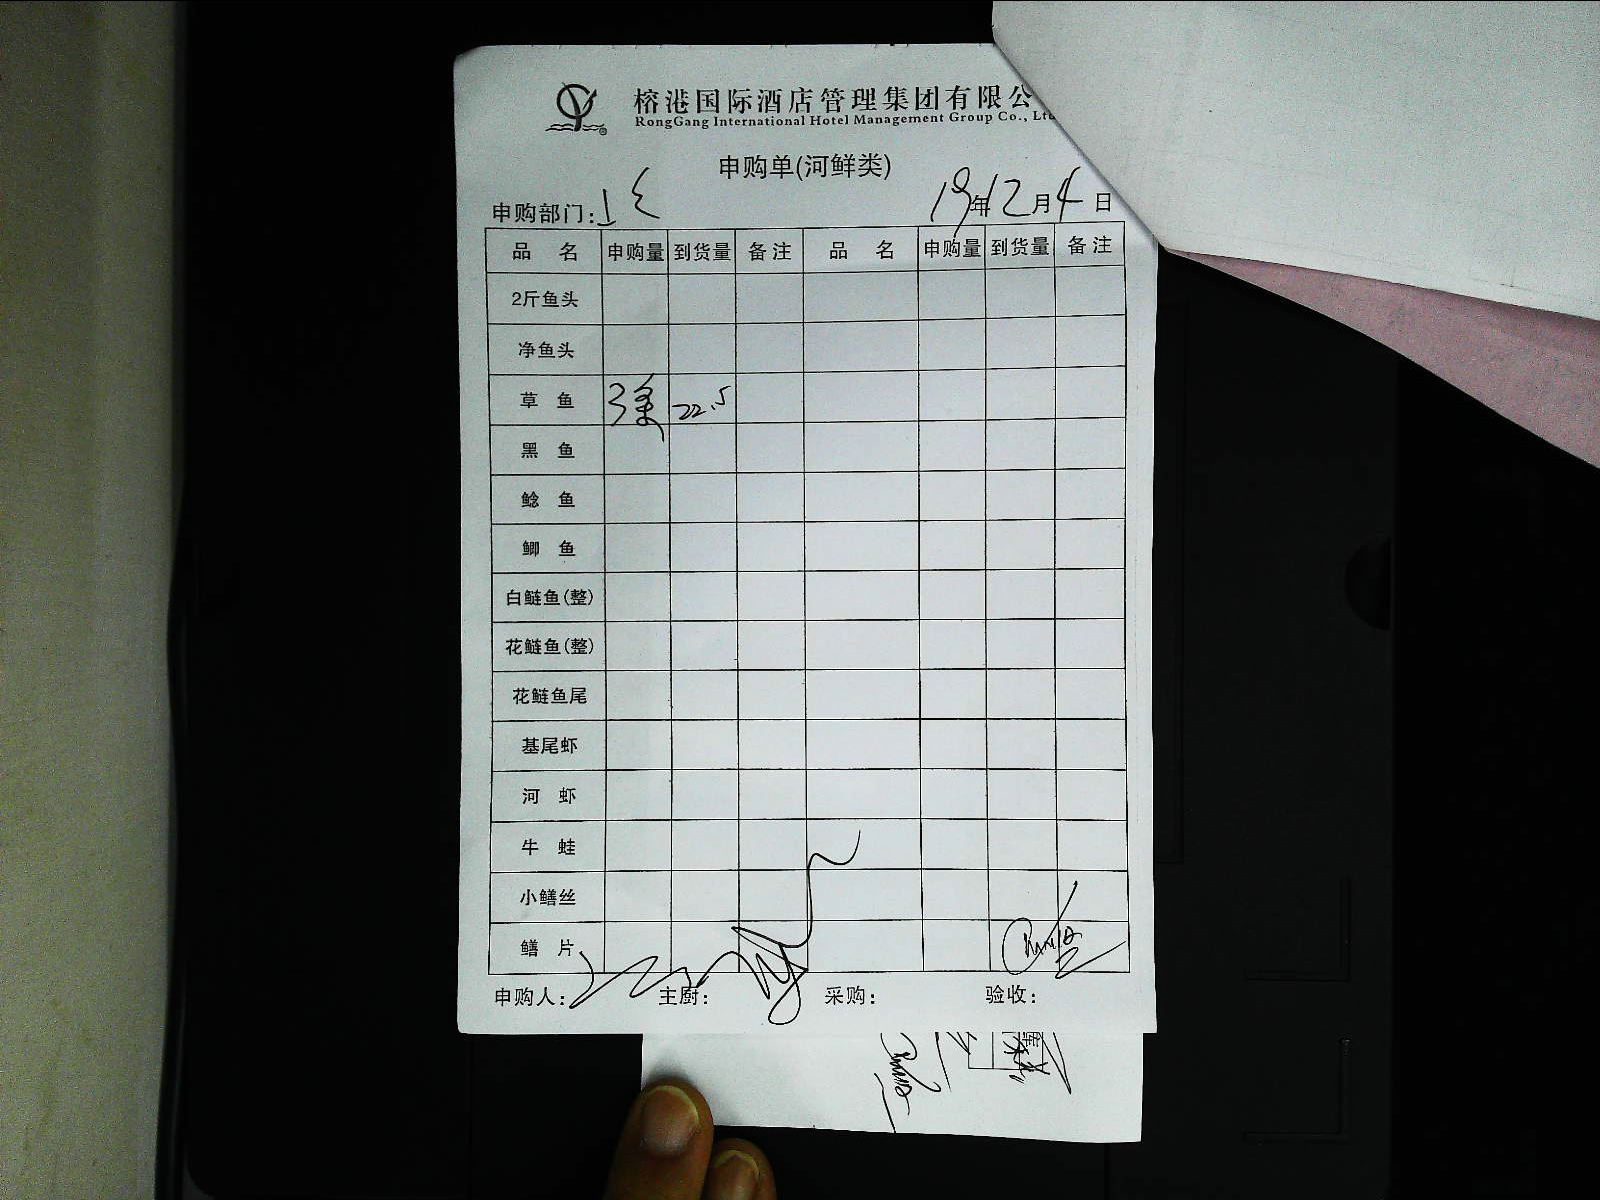 榕港国际酒店管理集团有限公
RongGang International Hotel Management Group Co., Ltd
申购单(河鲜类)
申购部门: 19年12月4日
品 名 申购量 到货量 备注 品 名 申购量 到货量 备注
2斤鱼头
净鱼头
草 鱼 3条 22.5
黑 鱼
鲶 鱼
鲫 鱼
白鲢鱼(整)
花鲢鱼(整)
花鲢鱼尾
基尾虾
河 虾
牛 蛙
小鳝丝
鳝 片
申购人: 主厨: 采购: 验收: